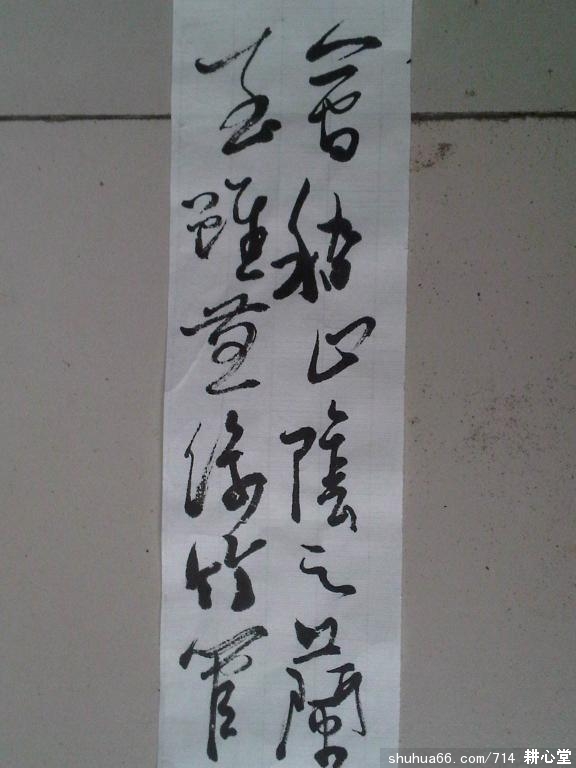 會稽山陰之蘭
至雖無絲竹管
shuhua66.com/714 耕心堂